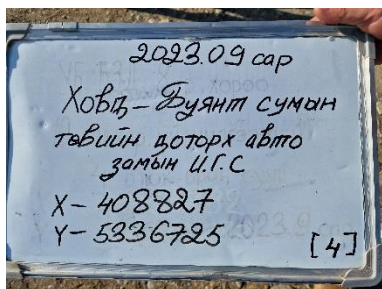 2023.09 сар
Ховд – Буянт сумын
төвийн доторх авто
замын И.Г.С
X – 408827
Y – 5336725
[4]